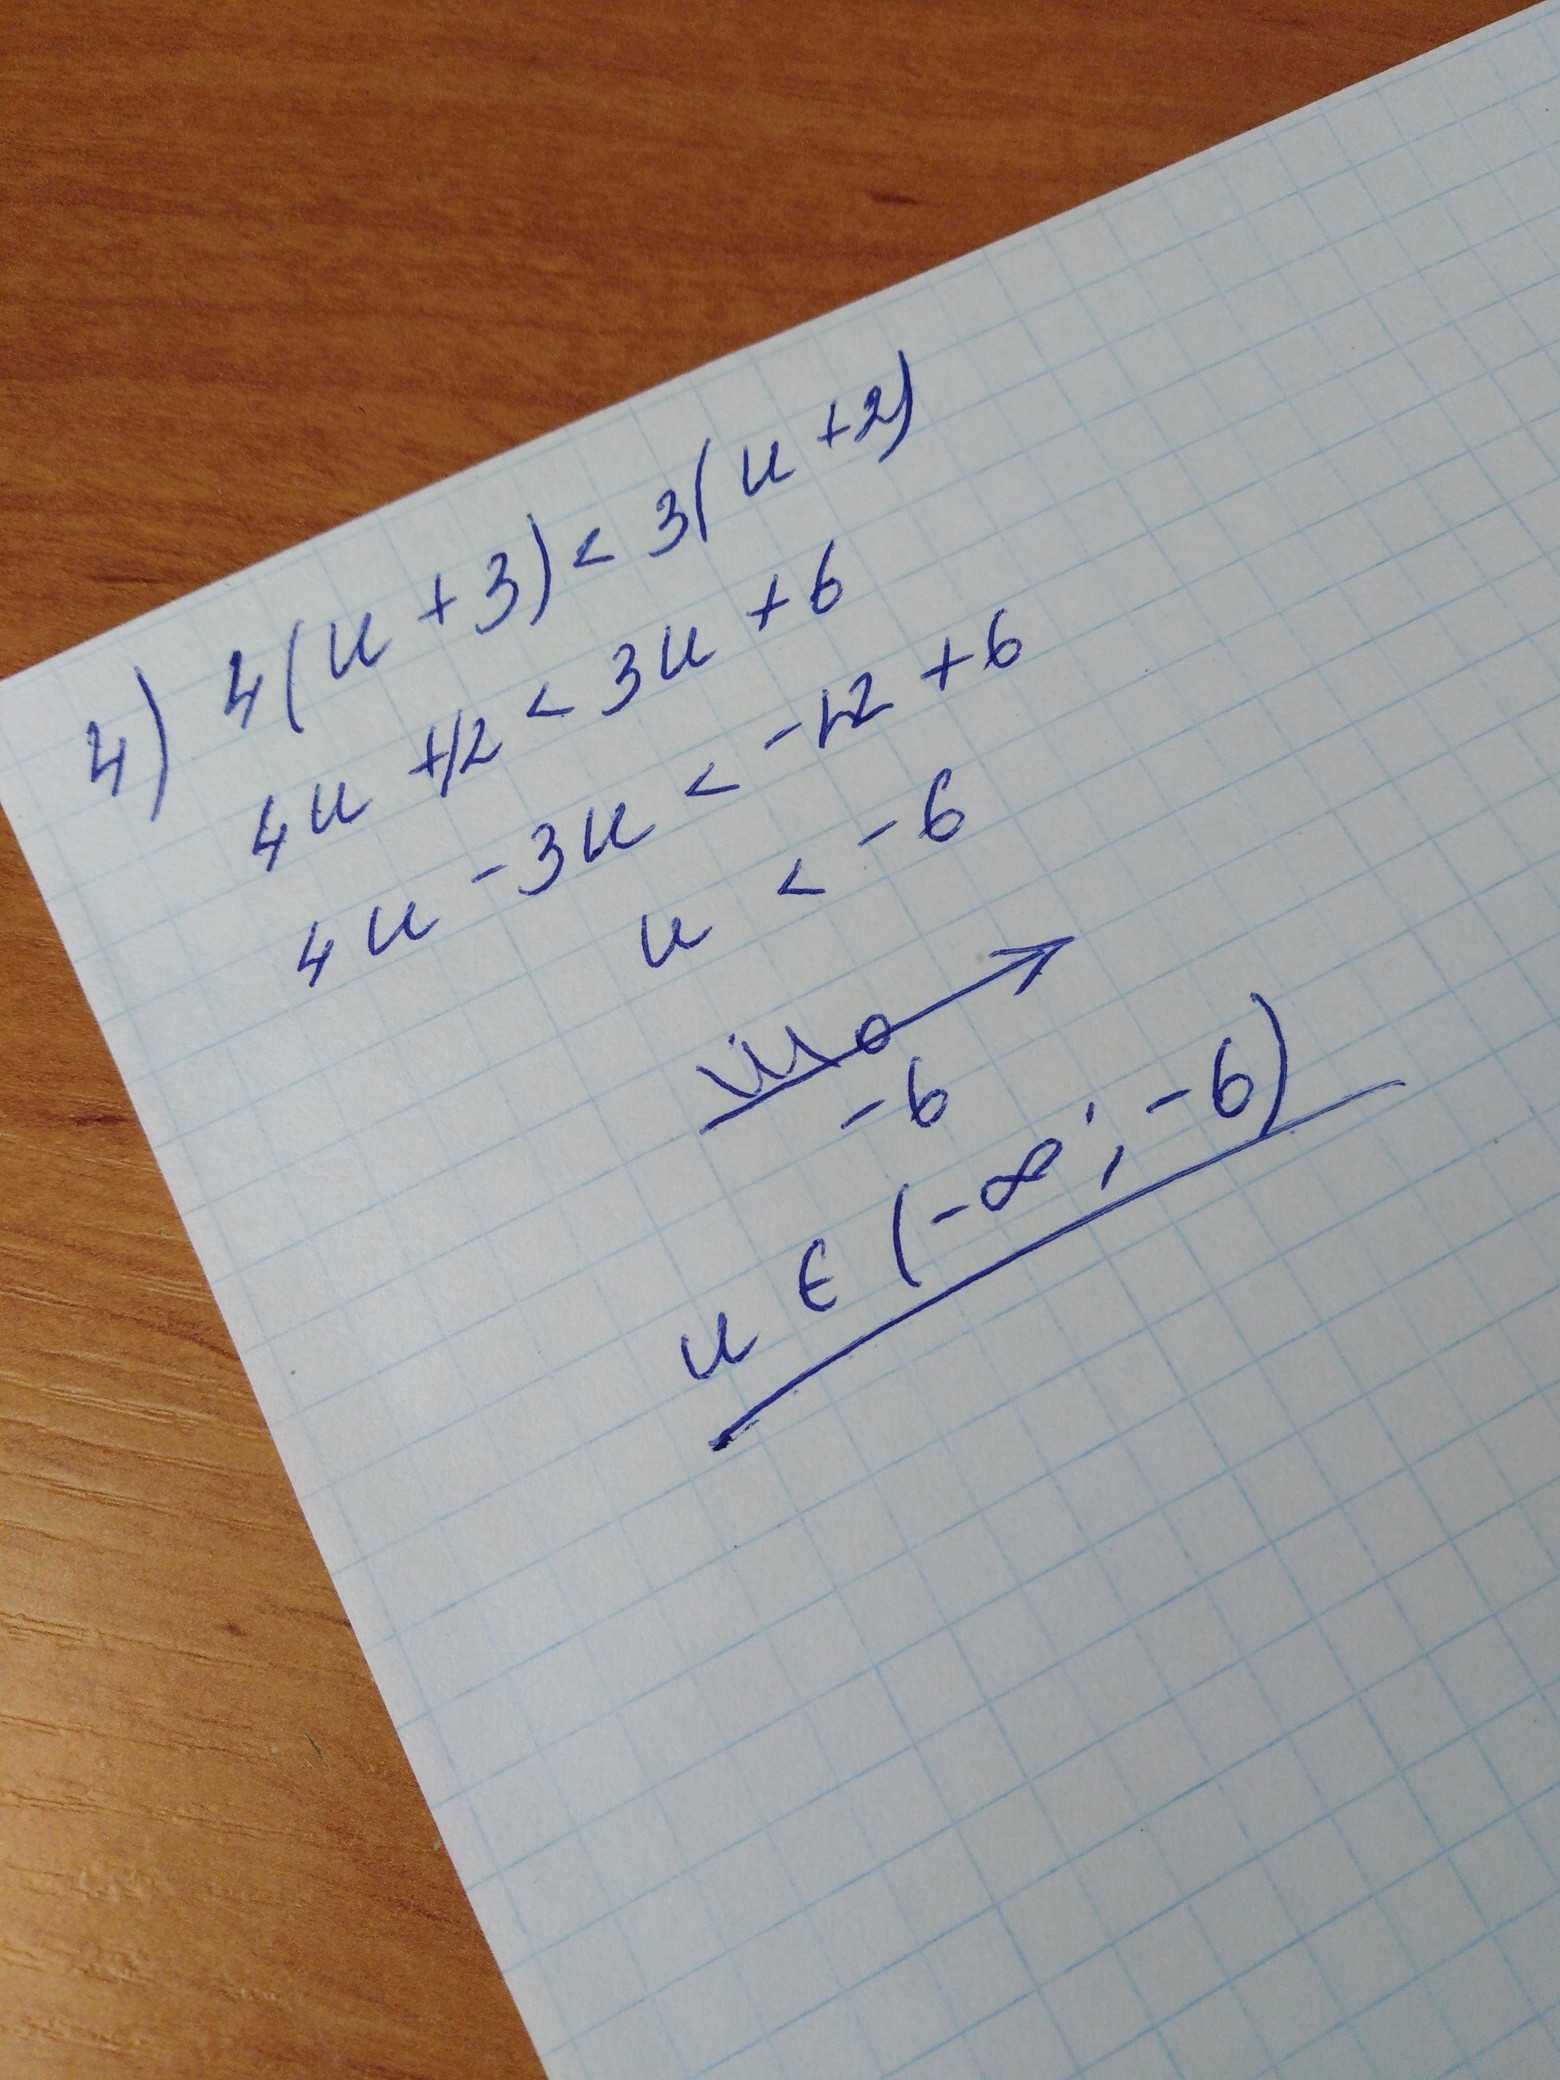 4) 4(u+3) < 3(u+2)
4u +12 < 3u +6
4u - 3u < -12 +6
u < -6
-6
u ∈ (-∞; -6)